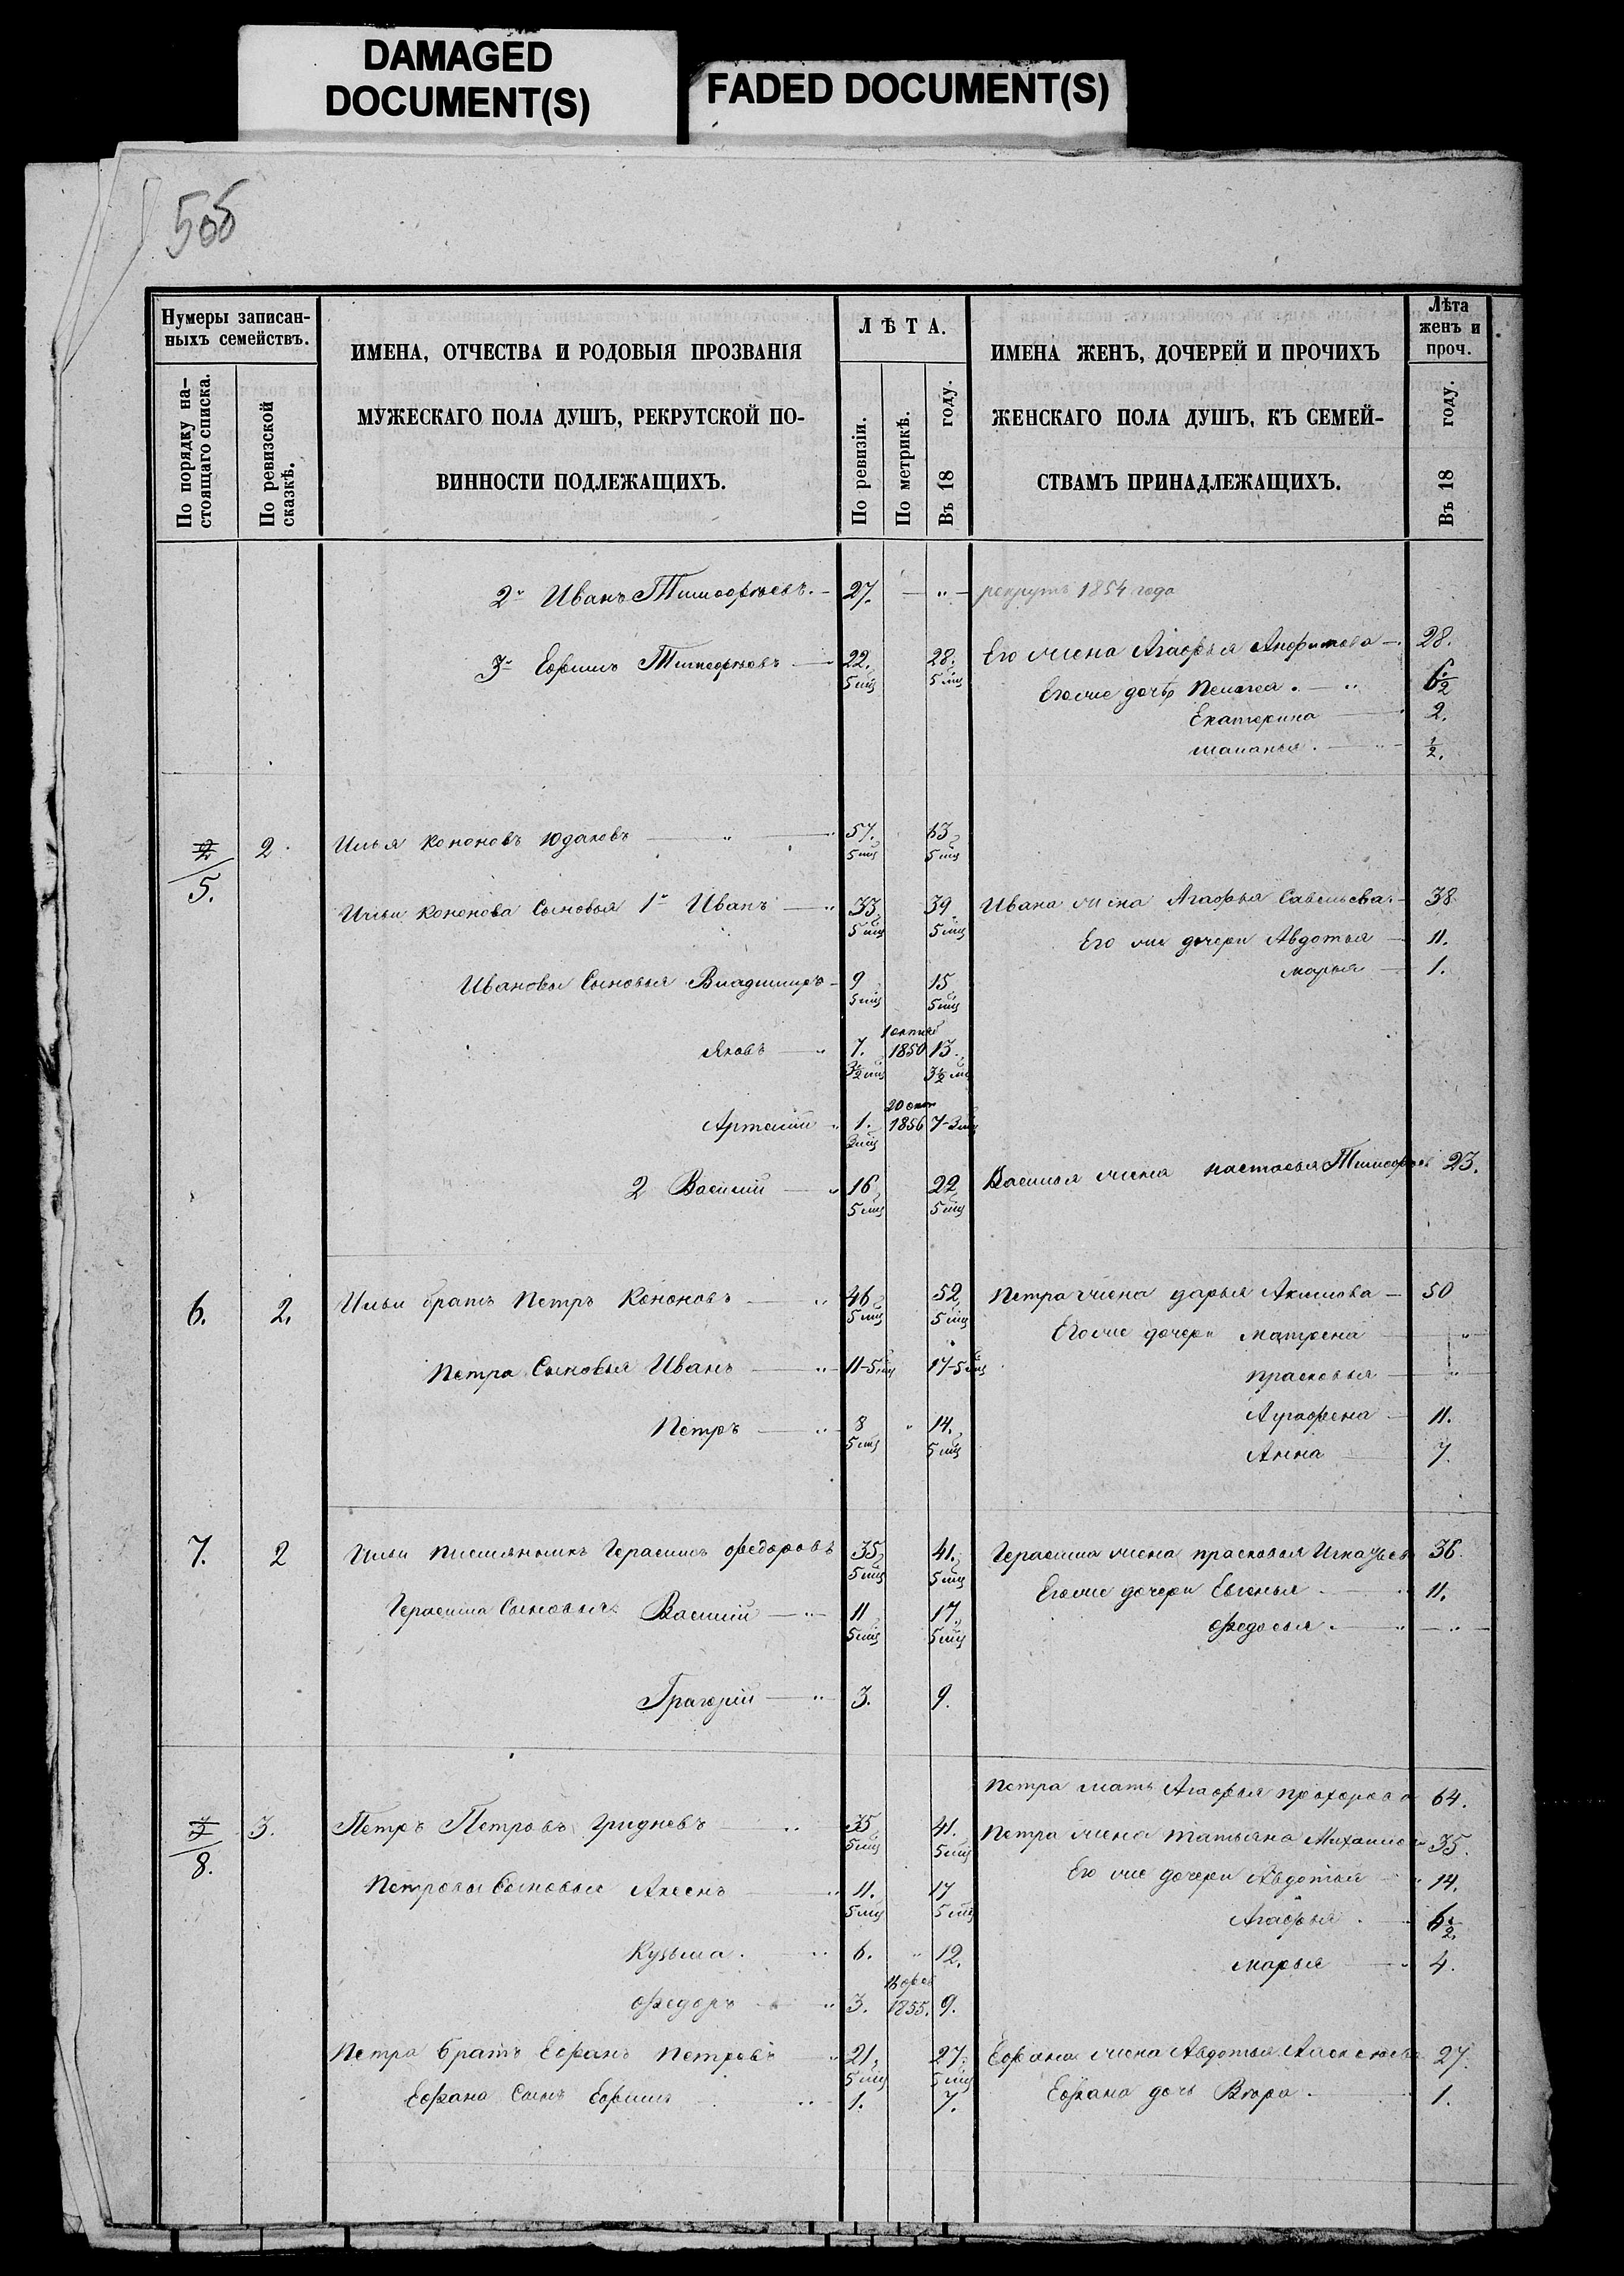 DAMAGED
DOCUMENT(S)
FADED DOCUMENT(S)
505
Нумеры записан-
ныхъ семействъ.
По порядку на-
стоящаго списка.
По ревизской
сказкѣ.
ИМЕНА, ОТЧЕСТВА И РОДОВЫЯ ПРОЗВАНІЯ
МУЖЕСКАГО ПОЛА ДУШЪ, РЕКРУТСКОЙ ПО-
ВИННОСТИ ПОДЛЕЖАЩИХЪ.
ЛѢТА.
По ревизіи.
По метрикѣ.
Въ 18 году.
ИМЕНА ЖЕНЪ, ДОЧЕРЕЙ И ПРОЧИХЪ
ЖЕНСКАГО ПОЛА ДУШЪ, КЪ СЕМЕЙ-
СТВАМЪ ПРИНАДЛЕЖАЩИХЪ.
Лѣта
женъ и
проч.
Въ 18 году.
2й Иванъ Тимофѣевъ. 27. рекрутъ 1854 года
3й Ефимъ Тимофѣевъ 22. 5 мц 28. 5 мц Его жена Агафья 28.
Его же дочь Пелагея 6 1/2
Екатерина 2.
Маланья 1/2.
2/5. 2 Илья Кононовъ Юдаковъ 57. 5 мц 63 5 мц
Ильи Кононова Сыновья 1й Иванъ 33 5 мц 39 5 мц Ивана жена Агафья Савельева 38
Его же дочери Авдотья 11.
Марья 1.
Ивановы Сыновья Владимиръ 9 5 мц 15 5 мц
Яковъ 7. 3 1/2 мц 1850 13 3 1/2 мц
Артемій 1. 3 мц 20 окт 1856 7-3 мц
2 Василій 16 5 мц 22 5 мц Василья жена Настасья Тимофѣев 23.
6. 2. Ильи братъ Петръ Кононовъ 46 5 мц 52 5 мц Петра жена Дарья Акимова 50
Его же дочери Матрена
Петра Сыновья Иванъ 11-5 мц 17-5 мц Прасковья
Петръ 8 5 мц 14. 5 мц Аграфена 11.
Анна 7.
7. 2 Ильи племянникъ Герасимъ Федоровъ 35 5 мц 41. 5 мц Герасима жена Прасковья Игнатьев 36.
Его же дочери Евгенья 11.
Герасима Сыновья Василій 11 5 мц 17. 5 мц Федосья
Григорій 3. 9.
Петра мать Агафья Прохорова 64.
8. 3. Петръ Петровъ Гридневъ 35 5 мц 41. 5 мц Петра жена Татьяна Михайлов 35.
Его же дочери Авдотья 14.
Петровы Сыновья Аксенъ 11. 5 мц 17 5 мц Агафья 6 1/2
Кузьма 6. 12. Марья 4.
Федоръ 3. 1855. 9.
Петра братъ Ефранъ Петровъ 21. 5 мц 27. 5 мц Ефрана жена Авдотья Алексѣева 27.
Ефрана Сынъ Ефимъ 1. 7. Ефрана дочь Вѣра 1.